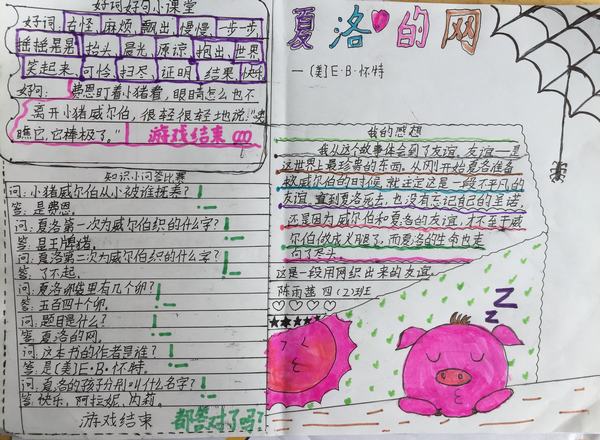 好词好句小课堂
好词: 奇怪 麻烦 飘出 慢慢 一步一步
摇摇晃晃 抬头 晨光 原谅 抱出 世界
笑起来 可怜 扫尽 证明 结果 快乐
好句: 费恩盯着小猪看，眼睛怎么也不
离开小猪威尔伯，很轻很轻地说:"噢
瞧它,它棒极了。" 游戏结束
知识小问答比赛
问:小猪威尔伯从小被谁抚养?
答:是费恩。
问:夏洛第一次为威尔伯织的什么字?
答:是王牌猪。
问:夏洛第二次为威尔伯织的什么字?
答:了不起。
问:夏洛卵袋里有几个卵?
答:五百四十个卵。
问:题目是什么?
答:夏洛的网。
问:这本书的作者是谁?
答:是(美)E·B·怀特。
问:夏洛的孩子分别叫什么名字?
答:快乐,阿拉妮,内莉。
游戏结束 都答对了吗?
夏洛的网
—(美)E·B·怀特
我的感想
我从这个故事体会到了友谊,友谊一是
这世界上最珍贵的东西。从刚开始夏洛准备
救威尔伯的时候,就注定这是一段不平凡的
友谊,直到夏洛死去,也没有忘记自己的承诺。
还是因为威尔伯和夏洛的友谊,才不至于威
尔伯做成火腿了,而夏洛的生命也走
向了尽头。
这是一段用网织出来的友谊。
陈雨 四(2)班
Z
Z